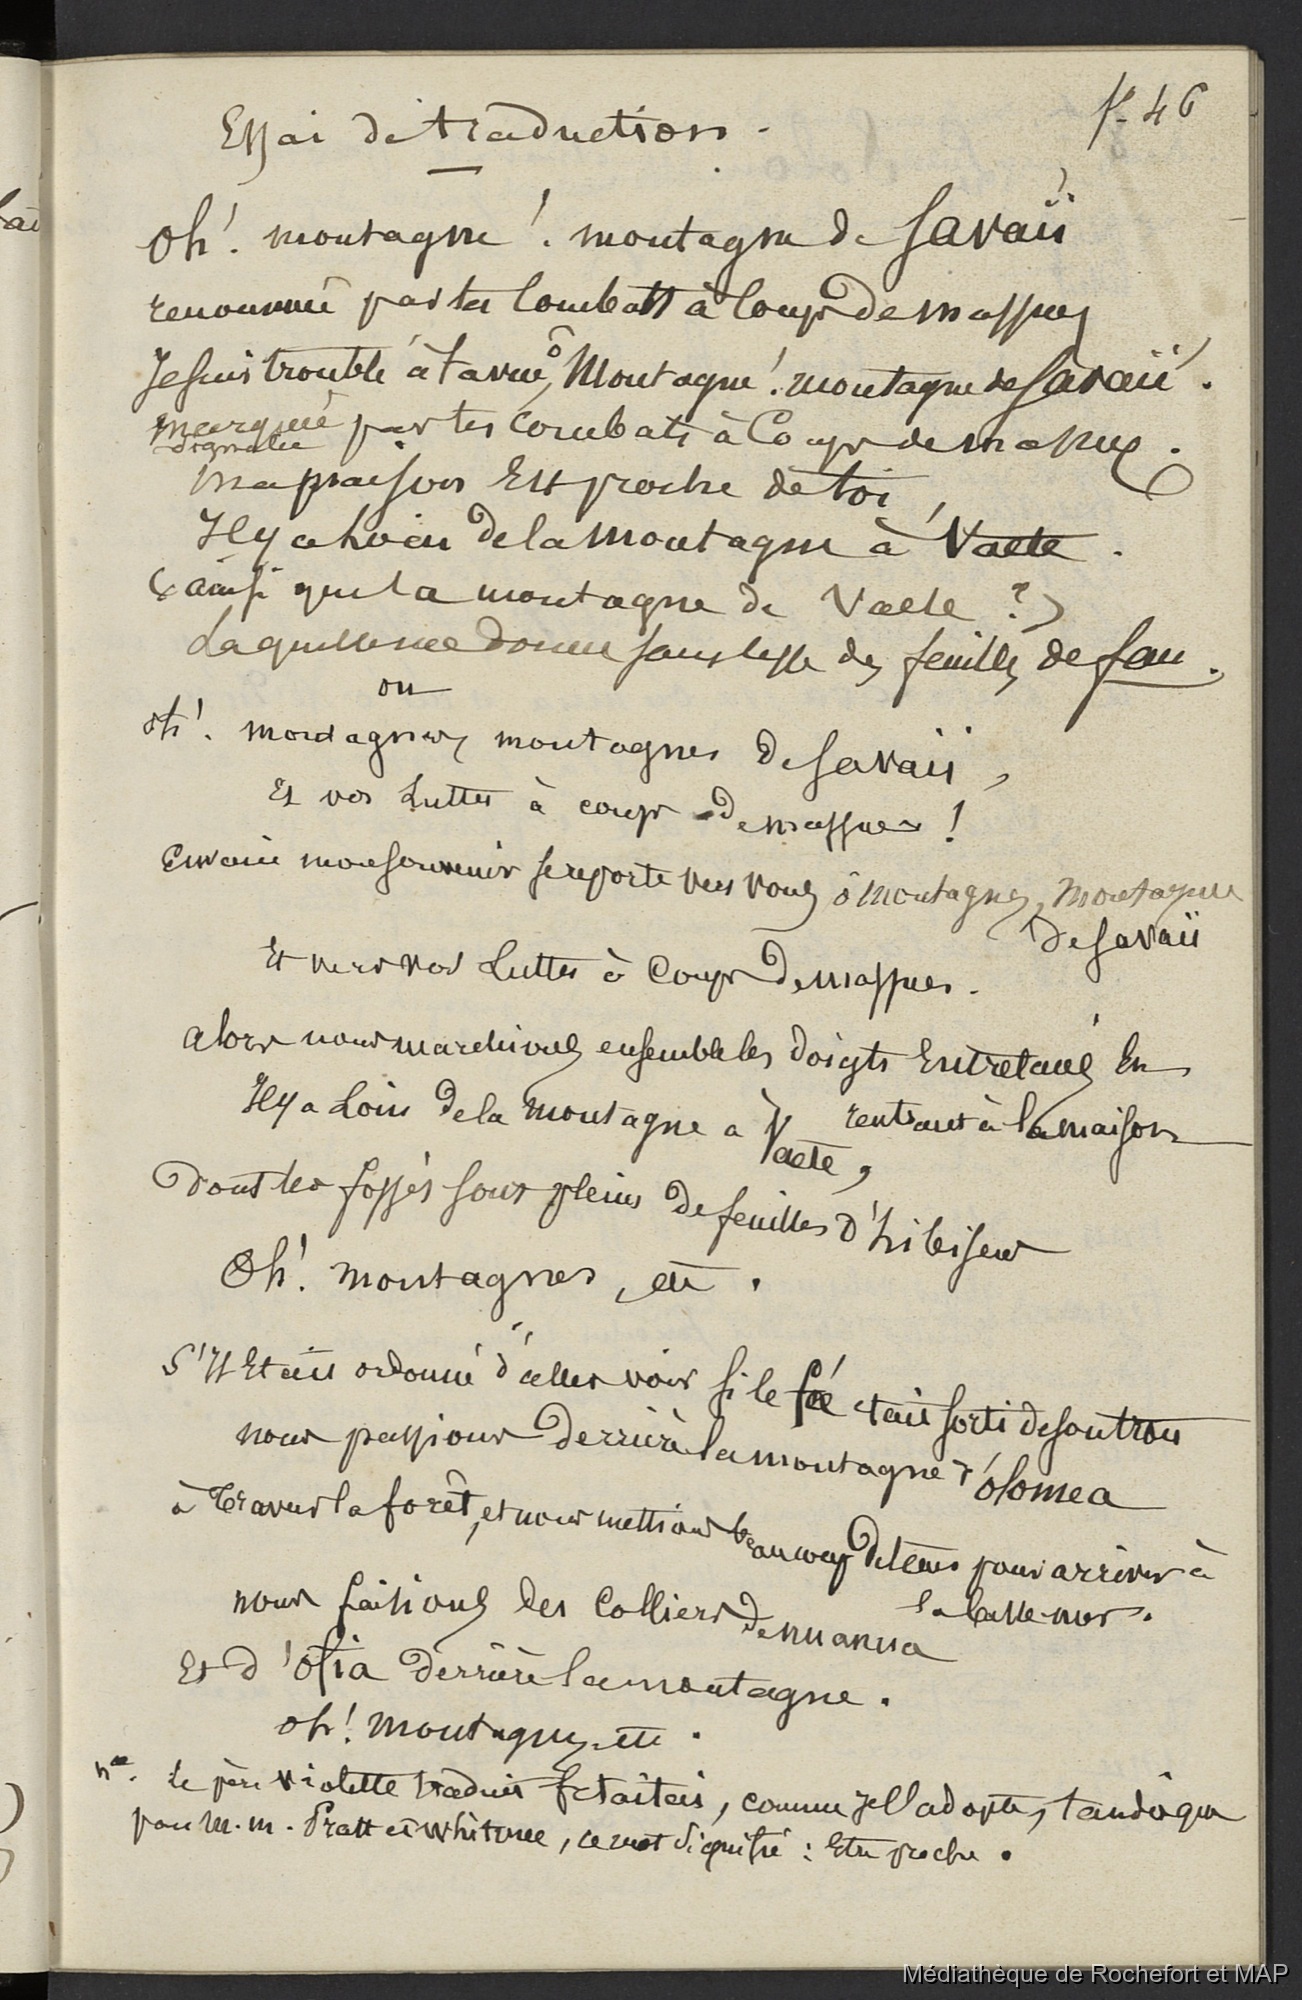 p. 46
Essai de traduction.
Oh! montagne! montagne de Savaïi
renommée par tes combats à coups de massues
Je suis troublé à ta vue, ô Montagne! montagne de Savaïi.
marquée par tes combats à coups de massues.
signalée
Ma maison est proche de toi,
Il y a loin de la montagne à Vaete.
(ainsi que la montagne de Vaete ?)
Laquelle me donne sans cesse des feuilles de fau.
ou
Oh! montagnes, montagnes de Savaïi,
Et vos luttes à coups de massues!
En vain mon souvenir se reporte vers vous ô montagnes, montagnes
de Savaïi
Et vers vos luttes à coups de massues.
Alors nous marchions ensemble les doigts entrelacés en
rentrant à la maison
Il y a loin de la montagne à Vaete,
Dont les fossés sont pleins de feuilles d'hibiscus
Oh! montagnes, etc.
S'il était ordonné d'aller voir si le fée était sorti de son trou
nous passions derrière la montagne d'Olomea
à travers la forêt, et nous mettions beaucoup de tems pour arriver à
la basse-mer.
nous faisions des colliers de nuanua
Et d'ofia derrière la montagne.
Oh! montagnes, etc.
Na. Le père Violette traduit fetaitai, comme je l'adopte, tandis que
pour M.M. Pratt et Whitmee, ce mot signifie : être proche.
Médiathèque de Rochefort et MAP